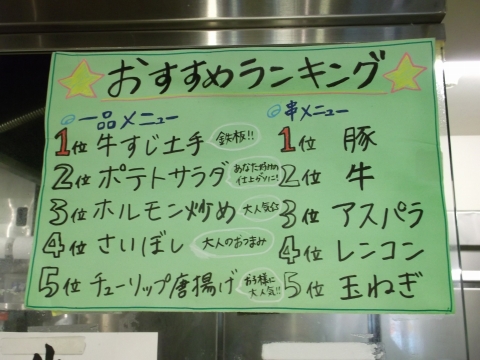 おすすめランキング
◎一品メニュー
1位 牛すじ土手 鉄板!!
2位 ポテトサラダ
3位 ホルモン炒め 大人気☆
4位 さいぼし 大人のおつまみ
5位 チューリップ唐揚げ お子様に大人気!!
◎串メニュー
1位 豚
2位 牛
3位 アスパラ
4位 レンコン
5位 玉ねぎ